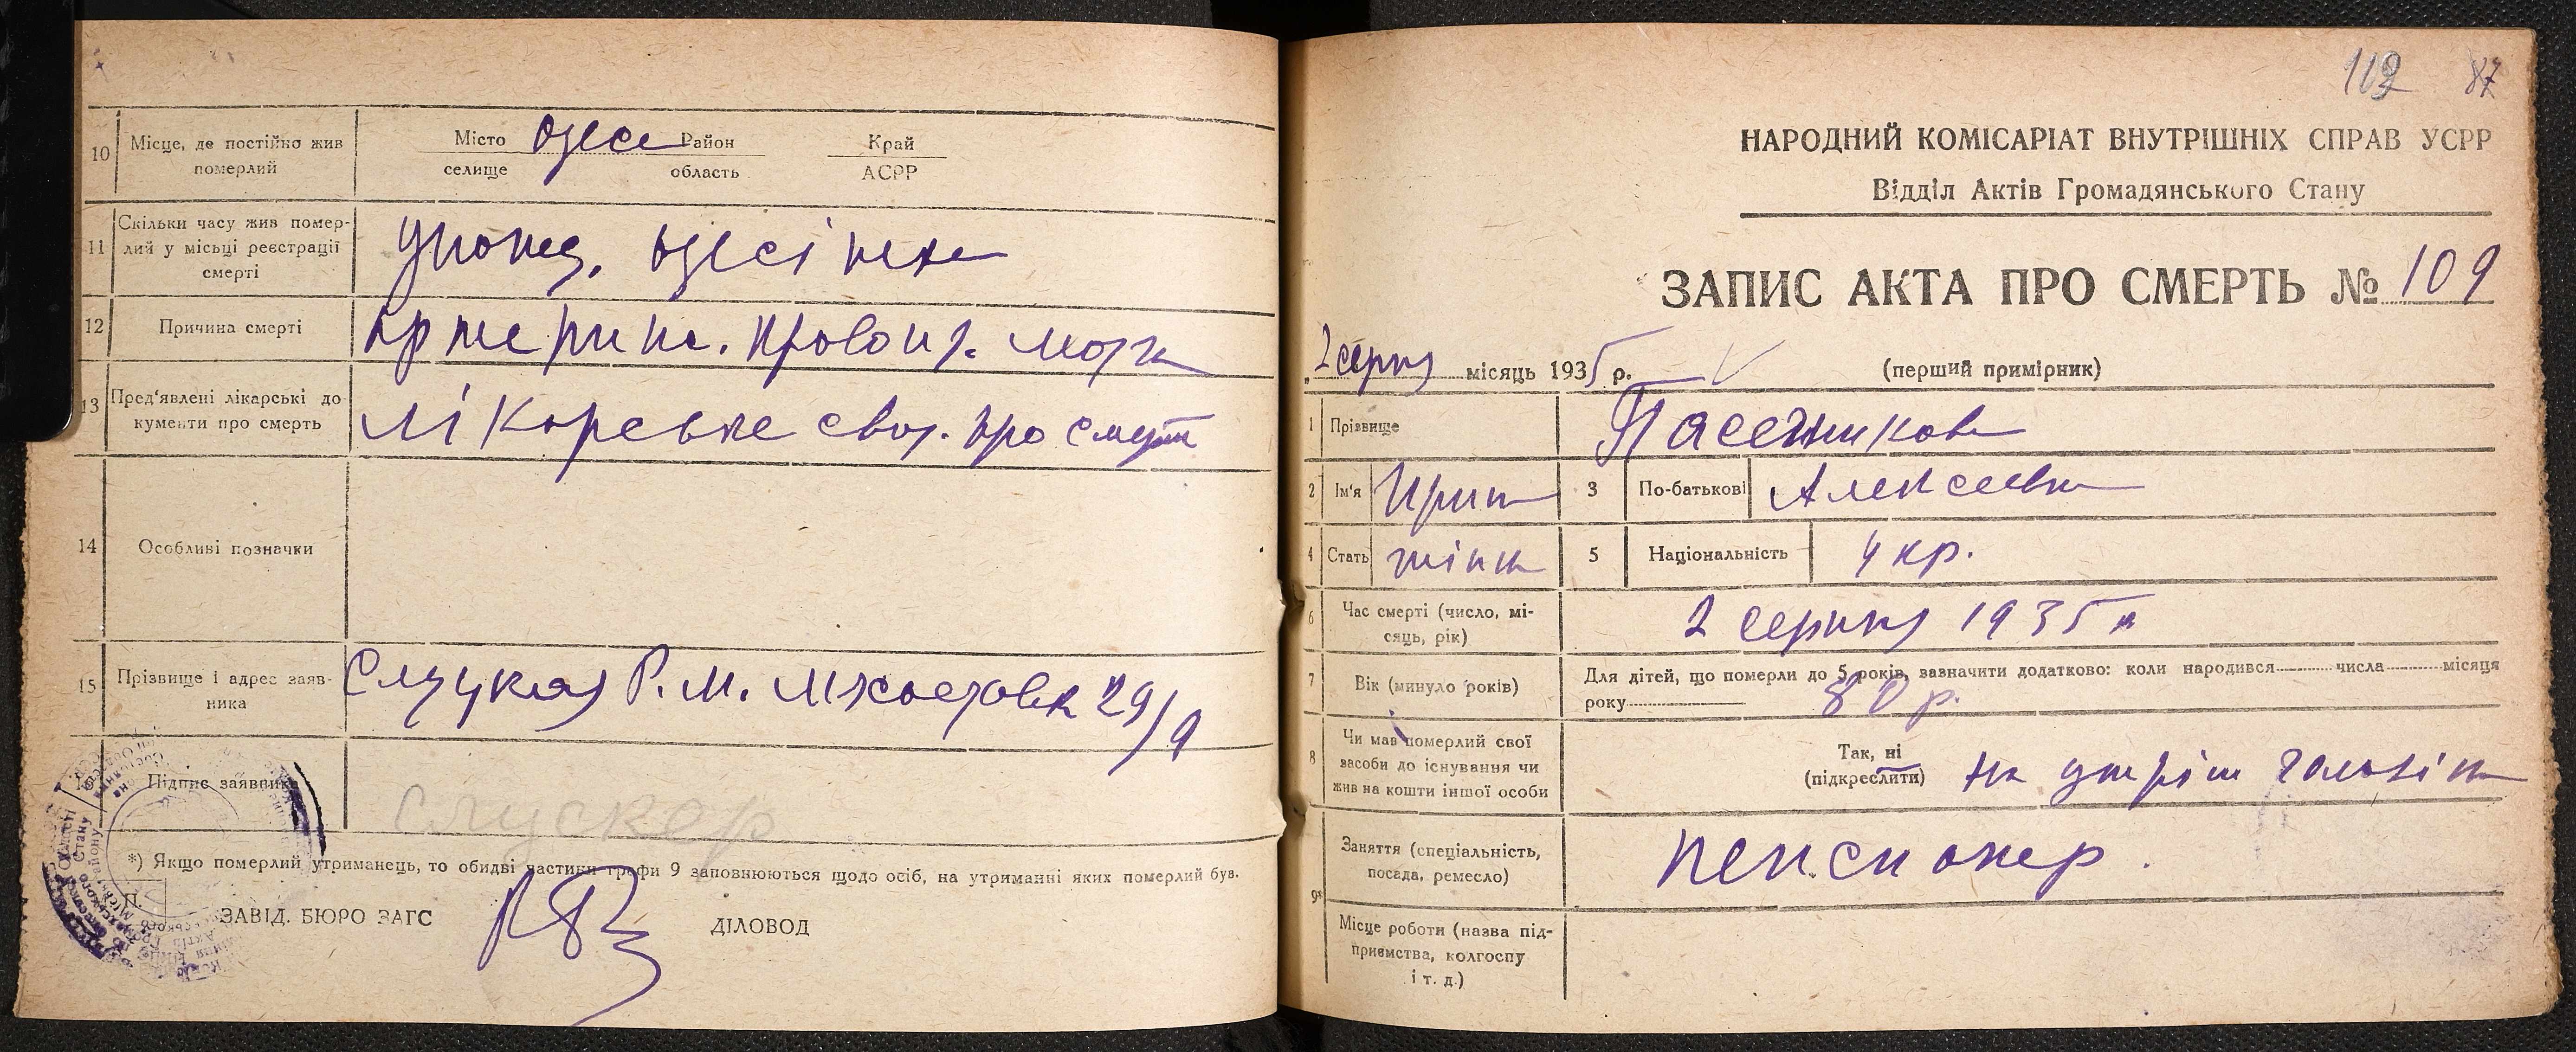 10 Місце, де постійно жив
померлий
Місто Одеса Район Край
селище область АСРР
11 Скільки часу жив помер-
лий у місьці реєстрації
смерті
Одесі
12 Причина смерті
13 Пред'явлені лікарські до
кументи про смерть
лікарське свід. про смерть
14 Особливі позначки
15 Прізвище і адрес заяв-
ника
Слуцкая Р. М. 29/9
Підпис заявника
*) Якщо померлий утриманець, то обидві частини графи 9 заповнюються щодо осіб, на утриманні яких померлий був.
П.
ЗАВІД. БЮРО ЗАГС ДІЛОВОД
112 87
НАРОДНИЙ КОМІСАРІАТ ВНУТРІШНІХ СПРАВ УСРР
Відділ Актів Громадянського Стану
ЗАПИС АКТА ПРО СМЕРТЬ № 109
2 серпня місяць 1935 р. (перший примірник)
1 Прізвище Пасечникова
2 Ім'я Ирина 3 По-батькові Алексеевна
4 Стать жінка 5 Національність укр.
6 Час смерті (число, мі-
сяць, рік)
2 серпня 1935 р
7 Вік (минуло років)
Для дітей, що померли до 5 років, вазначити додатково: коли народився числа місяця
року 80 р.
8 Чи мав померлий свої
засоби до існування чи
жив на кошти іншої особи
Так, ні
(підкреслити)
на
9* Заняття (спеціальність,
посада, ремесло)
пенсионер.
Місце роботи (назва під-
приємства, колгоспу
і т. д.)